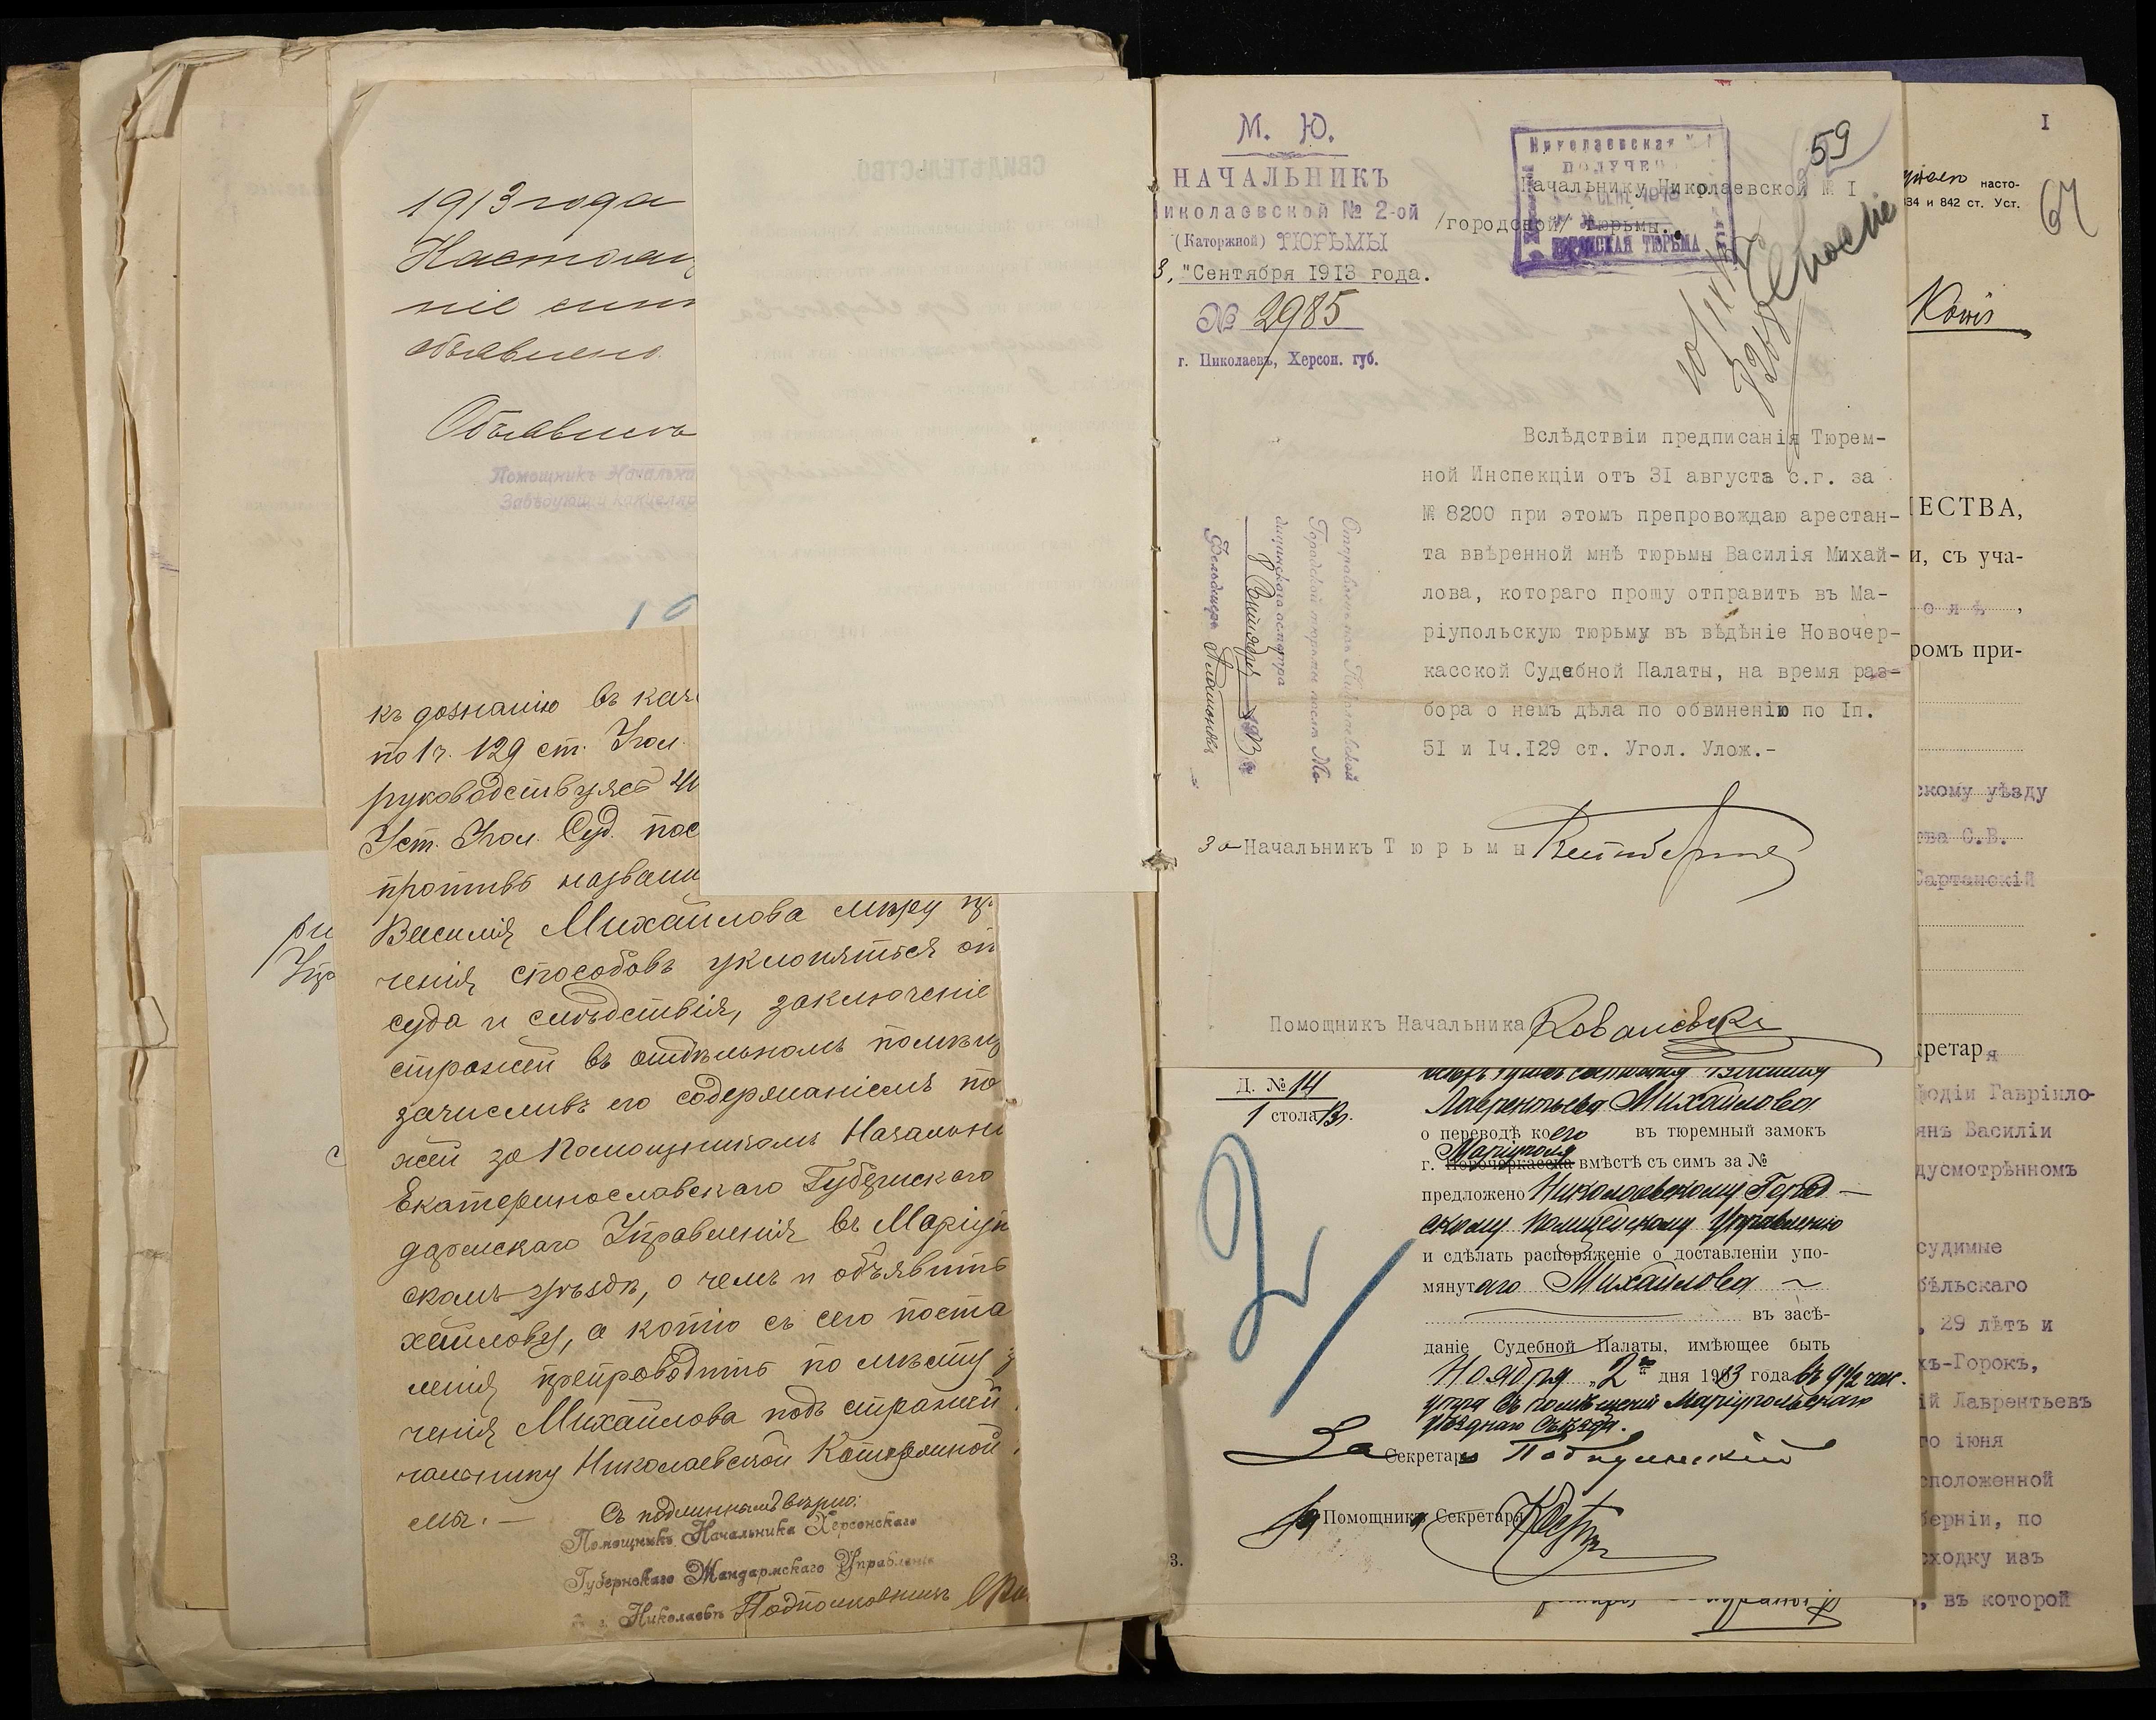 1913 года
Объявилъ
Помощникъ Начальни
Завѣдующ канцеляр
къ дознанію въ кач
по 1 ч. 129 ст. Угол.
руководствуясь
Уст. Угол. Суд. пос
противъ назван
Василія Михайлова мѣру пр
ченія способовъ уклоняться от
суда и слѣдствія, заключеніе
стражей въ отдѣльномъ помѣщ
зачисливъ его содержаніемъ по
жей за Помощникомъ Начальни
Екатеринославскаго Губернскаго
дармскаго Управленія въ Маріуп
скомъ уѣздѣ, о чемъ и объявить
хайлову, а копію съ сего поста
ленія препроводить по мѣсту з
ченія Михайлова подъ стражей
чальнику Николаевской Каторжной
мы. —
Съ подлиннымъ вѣрно:
Помощникъ Начальника Херсонскаго
Губернскаго Жандармскаго Управленія
г. Николаевъ Подполковникъ
М. Ю.
НАЧАЛЬНИКЪ
Николаевской № 2-ой
(Каторжной) ТЮРЬМЫ
"Сентября 1913 года.
№ 2985
г. Николаевъ, Херсон. губ.
59
Николаевская № 1
ПОЛУЧЕН
СЕНТ. 1913
ГОРОДСКАЯ ТЮРЬМА
Начальнику Николаевской № I
/городской/ тюрьмы.
Вслѣдствіи предписанія Тюрем-
ной Инспекціи отъ 3I августа с.г. за
№ 8200 при этомъ препровождаю арестан-
та ввѣренной мнѣ тюрьмы Василія Михай-
лова, котораго прошу отправить въ Ма-
ріупольскую тюрьму въ вѣдѣніе Новочер-
касской Судебной Палаты, на время раз-
бора о немъ дѣла по обвиненію по Iп.
5I и Iч.I29 ст. Угол. Улож.-
Отправленъ изъ Николаевской
Городской тюрьмы послѣ Ме-
дицинскаго осмотра
8 Сентября 1913 г.
Фельдшеръ
За Начальникъ Тюрьмы
Помощникъ Начальника
Д. № 14
1 стола 13 г.
Лаврентьева Михайлова
о переводѣ коего въ тюремный замокъ
Маріуполя
г. Новочеркасска вмѣстѣ съ симъ за №
предложено Николаевскому Город —
скому Полицейскому Управленію
и сдѣлать распоряженіе о доставленіи упо-
мянутаго Михайлова ~
въ засѣ-
даніе Судебной Палаты, имѣющее быть
Ноября „2го дня 1913 года въ 9½ час.
утра въ помѣщеніи Маріупольскаго
Уѣзднаго Съѣзда.
За Секретаря
За Помощника Секретаря
3.
I
насто-
и 842 ст. Уст.
64
ЕСТВА,
и, съ уча-
олѣ,
ромъ при-
скому уѣзду
тва С.В.
Сартанскій
кретаря
одіи Гавріило-
янъ Василіи
дусмотрѣнномъ
судимые
бѣльскаго
, 29 лѣтъ и
хъ-Горокъ,
ій Лаврентьевъ
го іюня
сположенной
берніи, по
сходку изъ
, въ которой